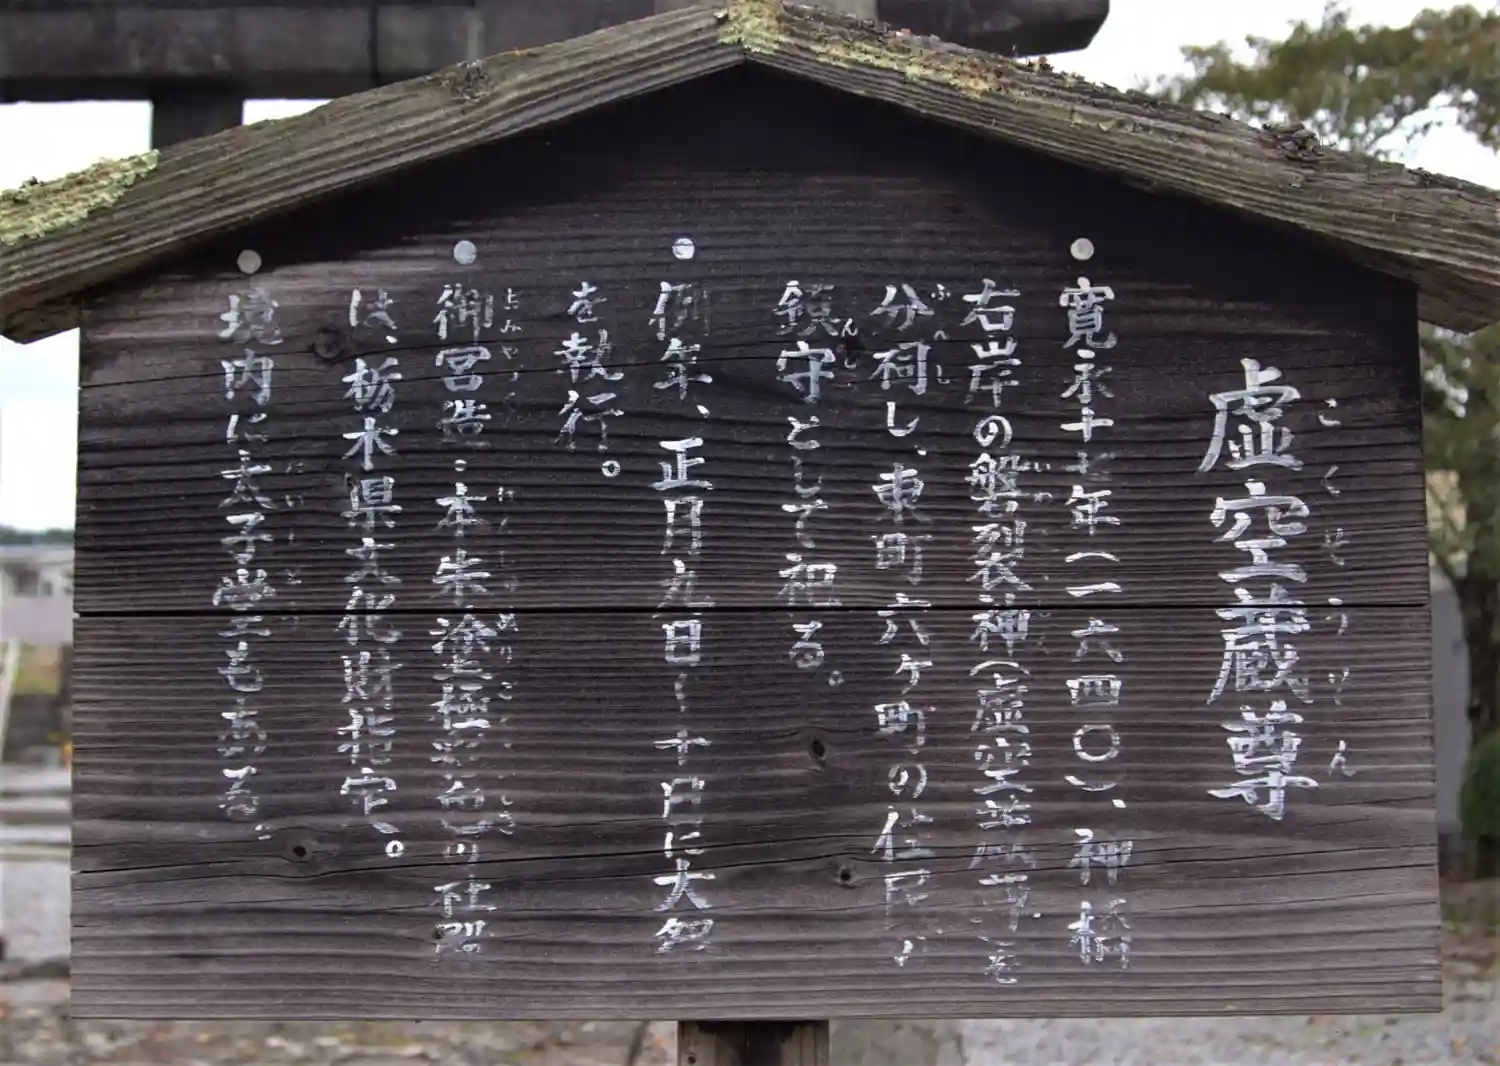 虚空蔵尊
こくぞうそん
寛永十七年(一六四〇)、神橋
右岸の磐裂神(虚空蔵尊)を
分祠し、東町六ヶ町の住民の
鎮守として祀る。
例年、正月九日〜十日に大祭
を執行。
御宮造・本朱塗極彩色の社殿
は、栃木県文化財指定。
境内に太子堂もある。